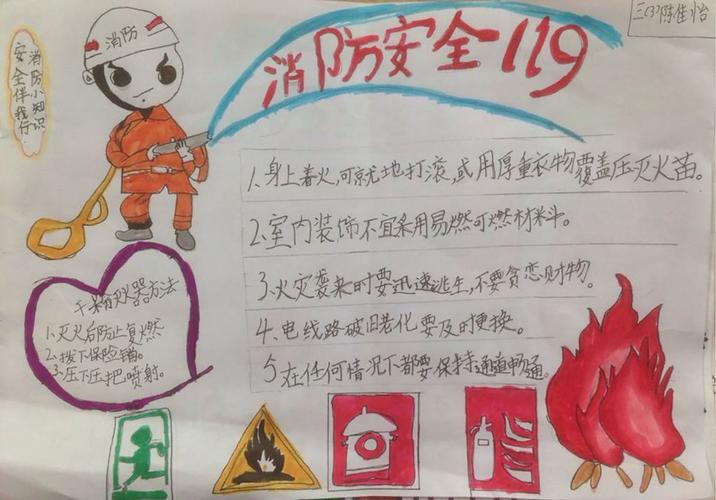 三(3)陈佳怡
消防安全119
消防小知识
安全伴我行
消防
1.身上着火,可就地打滚,或用厚重衣物覆盖压灭火苗。
2.室内装饰不宜采用易燃可燃材料。
3.火灾袭来时要迅速逃生,不要贪恋财物。
4.电线路破旧老化要及时更换。
5.在任何情况下都要保持通道畅通。
干粉灭火器方法
1.灭火后防止复燃
2.拨下保险销。
3.压下压把喷射。